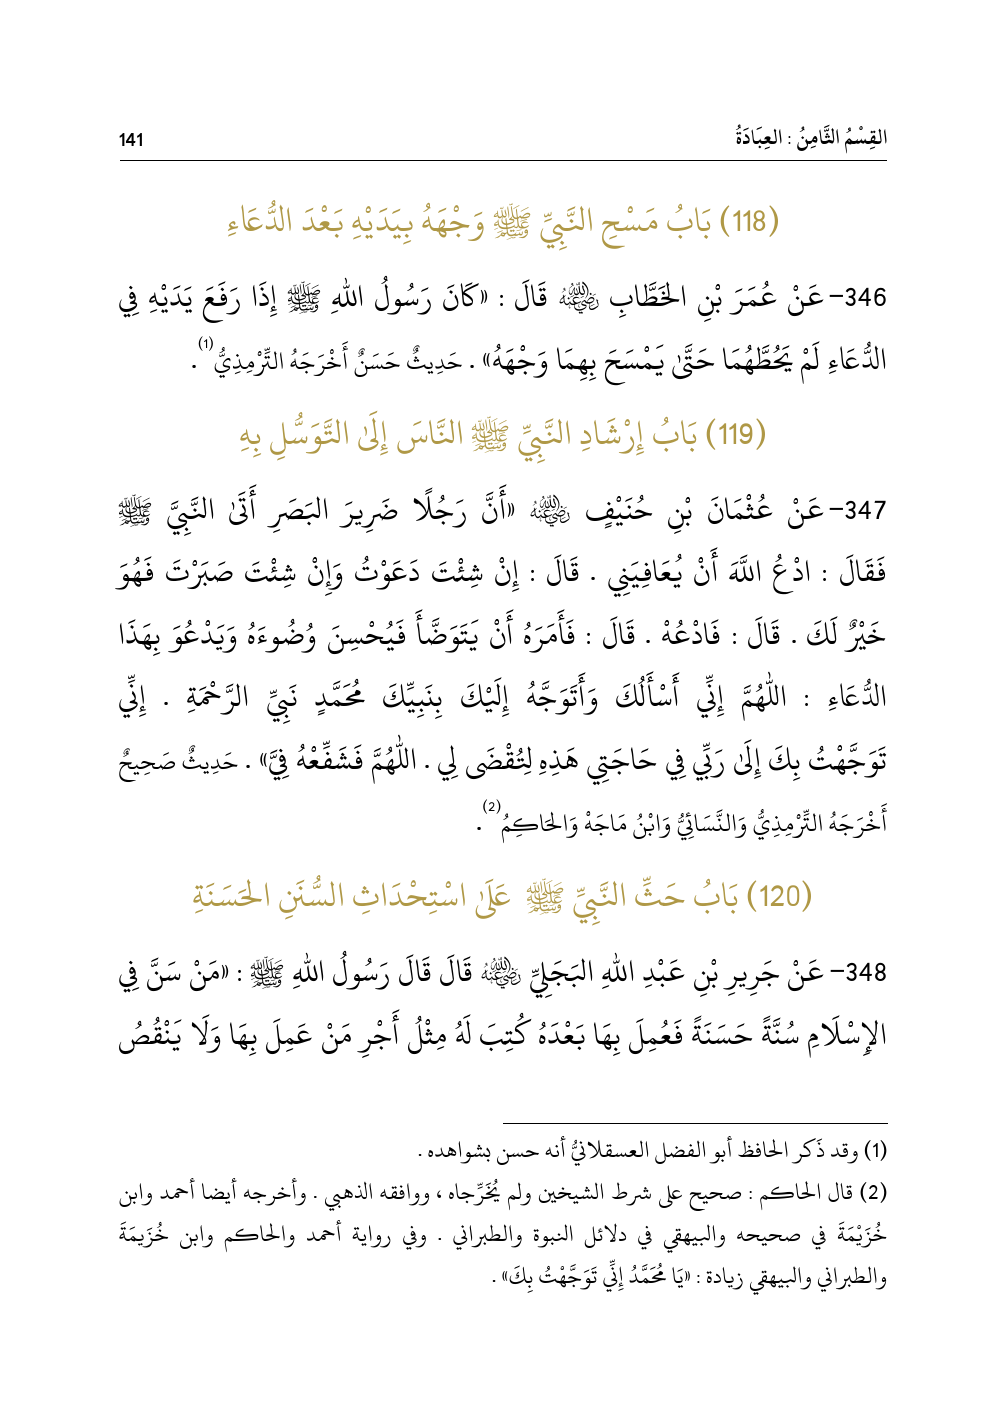 القِسْمُ الثَّامِنُ : العِبَادَةُ 141
(118) بَابُ مَسْحِ النَّبِيِّ ﷺ وَجْهَهُ بِيَدَيْهِ بَعْدَ الدُّعَاءِ
346– عَنْ عُمَرَ بْنِ الخَطَّابِ رضي الله عنه قَالَ : «كَانَ رَسُولُ اللهِ ﷺ إِذَا رَفَعَ يَدَيْهِ فِي
الدُّعَاءِ لَمْ يَحُطَّهُمَا حَتَّىٰ يَمْسَحَ بِهِمَا وَجْهَهُ» . حَدِيثٌ حَسَنٌ أَخْرَجَهُ التِّرْمِذِيُّ(1).
(119) بَابُ إِرْشَادِ النَّبِيِّ ﷺ النَّاسَ إِلَىٰ التَّوَسُّلِ بِهِ
347– عَنْ عُثْمَانَ بْنِ حُنَيْفٍ رضي الله عنه «أَنَّ رَجُلًا ضَرِيرَ البَصَرِ أَتَىٰ النَّبِيَّ ﷺ
فَقَالَ : ادْعُ اللَّهَ أَنْ يُعَافِيَنِي . قَالَ : إِنْ شِئْتَ دَعَوْتُ وَإِنْ شِئْتَ صَبَرْتَ فَهُوَ
خَيْرٌ لَكَ . قَالَ : فَادْعُهْ . قَالَ : فَأَمَرَهُ أَنْ يَتَوَضَّأَ فَيُحْسِنَ وُضُوءَهُ وَيَدْعُوَ بِهَذَا
الدُّعَاءِ : اللّٰهُمَّ إِنِّي أَسْأَلُكَ وَأَتَوَجَّهُ إِلَيْكَ بِنَبِيِّكَ مُحَمَّدٍ نَبِيِّ الرَّحْمَةِ . إِنِّي
تَوَجَّهْتُ بِكَ إِلَىٰ رَبِّي فِي حَاجَتِي هَذِهِ لِتُقْضَى لِي . اللّٰهُمَّ فَشَفِّعْهُ فِيَّ» . حَدِيثٌ صَحِيحٌ
أَخْرَجَهُ التِّرْمِذِيُّ وَالنَّسَائِيُّ وَابْنُ مَاجَهْ وَالحَاكِمُ(2).
(120) بَابُ حَثِّ النَّبِيِّ ﷺ عَلَىٰ اسْتِحْدَاثِ السُّنَنِ الحَسَنَةِ
348– عَنْ جَرِيرِ بْنِ عَبْدِ اللهِ البَجَلِيِّ رضي الله عنه قَالَ قَالَ رَسُولُ اللهِ ﷺ : «مَنْ سَنَّ فِي
الإِسْلَامِ سُنَّةً حَسَنَةً فَعُمِلَ بِهَا بَعْدَهُ كُتِبَ لَهُ مِثْلُ أَجْرِ مَنْ عَمِلَ بِهَا وَلَا يَنْقُصُ
(1) وقد ذَكر الحافظ أبو الفضل العسقلانيُّ أنه حسن بشواهده .
(2) قال الحاكم : صحيح على شرط الشيخين ولم يُخَرِّجاه ، ووافقه الذهبي . وأخرجه أيضا أحمد وابن
خُزَيْمَةَ في صحيحه والبيهقي في دلائل النبوة والطبراني . وفي رواية أحمد والحاكم وابن خُزَيمَةَ
والطبراني والبيهقي زيادة : «يَا مُحَمَّدُ إِنِّي تَوَجَّهْتُ بِكَ» .